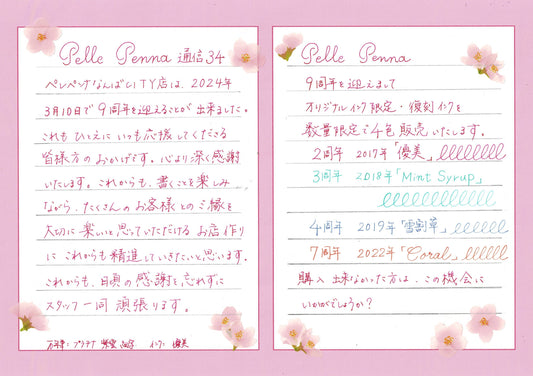 Pelle Penna 通信34
ペレペンナなんばCITY店は、2024年
3月10日で9周年を迎えることが出来ました。
これも ひとえに いつも応援してくださる
皆様方のおかげです。心より深く感謝
いたします。これからも、書くことを楽しみ
ながら、たくさんのお客様とのご縁を
大切に 楽しいと思っていただける お店作り
に これからも精進していきたいと思います。
これからも、日頃の感謝を忘れずに
スタッフ一同 頑張ります。
万年筆: プラチナ 紫雲 インク: 優美
Pelle Penna
9周年を迎えまして
オリジナルインク限定・復刻インクを
数量限定で4色販売いたします。
2周年 2017年「優美」
3周年 2018年「Mint Syrup」
4周年 2019年「雪割草」
7周年 2022年「Coral」
購入 出来なかった方は、この機会に
いかがでしょうか？